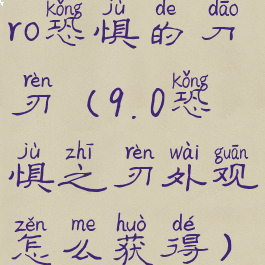 kǒng jù de dāo
ro恐惧的刀
rèn kǒng
刃(9.0恐
jù zhī rèn wài guān
惧之刃外观
zěn me huò dé
怎么获得)